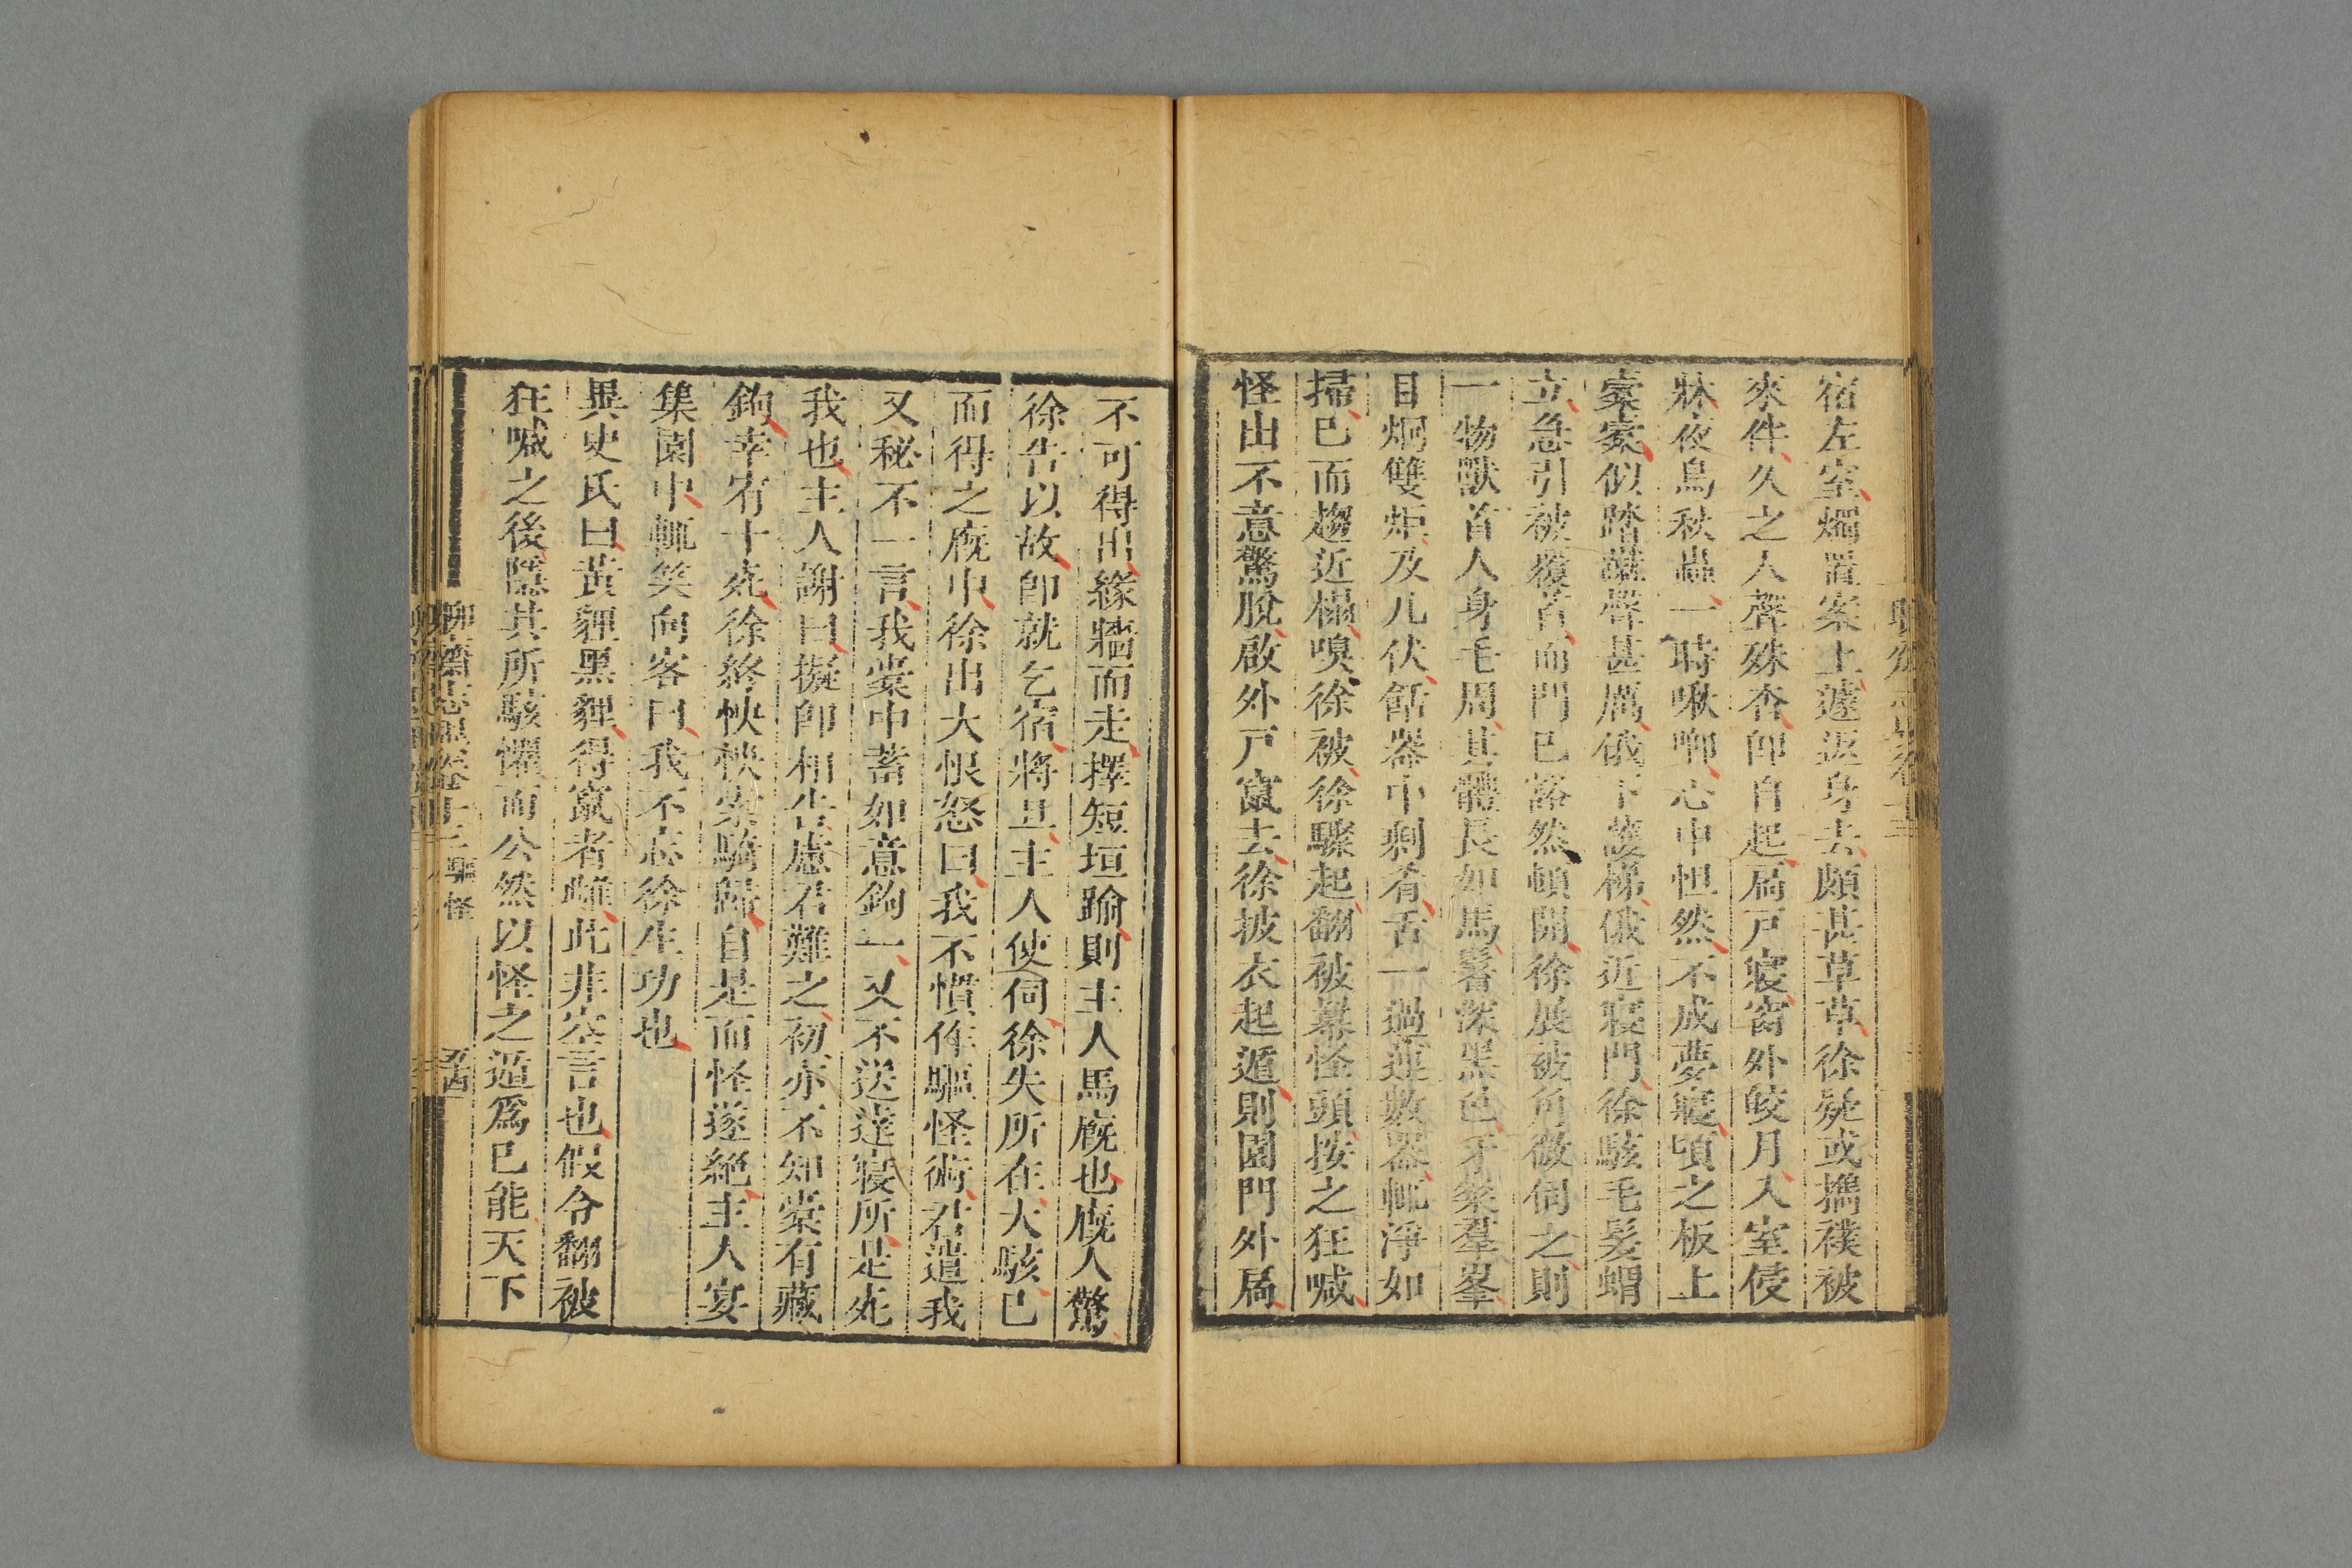 宿左室燭置案上遽返身去頗甚草草徐疑或攜襆被
來伴久之人聲殊杳卽自起扃戸寢窗外皎月入室侵
牀夜鳥秋蟲一時啾唧心中怛然不成夢寢頃之板上
橐橐似踏蹴聲甚厲俄下護梯俄近寢門徐駭毛髪蝟
立急引被覆首而門已豁然頓開徐展被角微伺之則
一物獸首人身毛周其體長如馬鬐深黑色牙粲羣峯
目炯雙炬及几伏餂器中剩肴舌一過連數器輒淨如
掃已而趨近榻嗅徐被徐驟起翻被冪怪頭按之狂喊
怪出不意驚脫啟外戸竄去徐披衣起遁則園門外扃
不可得出緣牆而走擇短垣踰則主人馬廐也廐人驚
徐告以故卽就乞宿將旦主人使伺徐失所在大駭已
而得之廐中徐出大恨怒曰我不慣作驅怪術君遣我
又秘不一言我橐中蓄如意鉤一又不送達寢所是死
我也主人謝曰擬卽相告慮君難之初亦不知橐有藏
鉤幸宥十死徐終怏怏索騎歸自是而怪遂絕主人宴
集園中輒笑向客曰我不忘徐生功也
異史氏曰黃貍黑貍得竄者雄此非空言也假令翻被
狂喊之後隱其所駭懼而公然以怪之遁爲已能天下
聊齋志異卷十三 驅怪